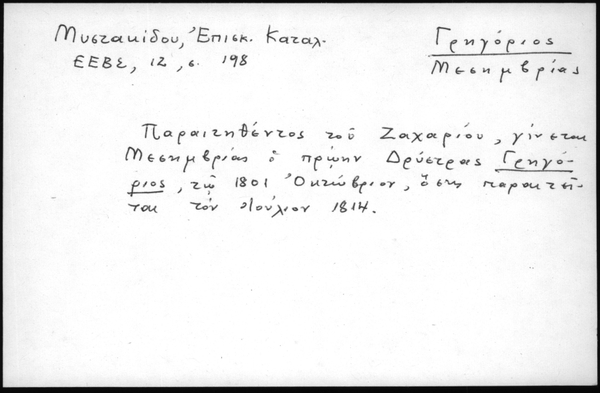 Μυστακίδου, Ἐπισκ. Καταλ.
ΕΕΒΣ, 12, σ. 198
Γρηγόριος
Μεσημβρίας
Παραιτηθέντος τοῦ Ζαχαρίου, γίνεται
Μεσημβρίας ὁ πρῴην Δρύστρας Γρηγό-
ριος, τῷ 1801 Ὀκτώβριον, ὅστις παραιτεῖ-
ται τὸν Ἰούλιον 1814.